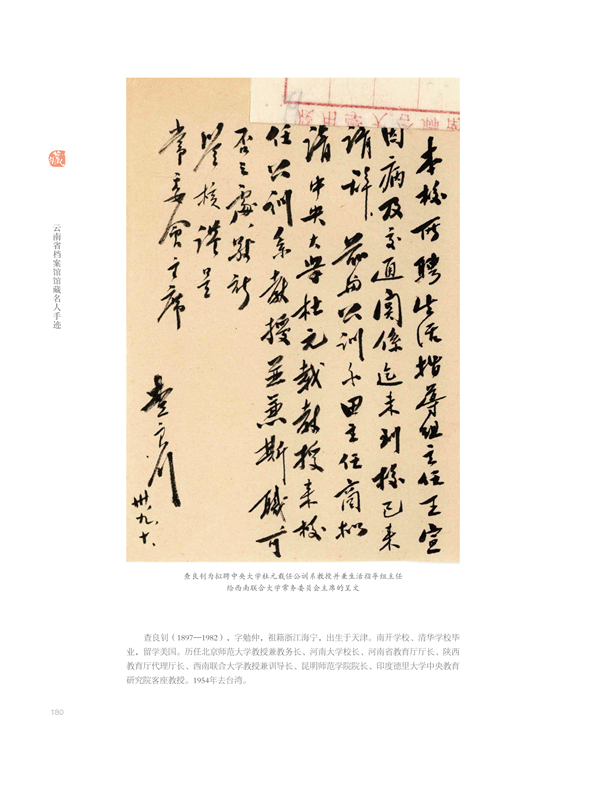 本校所聘生活指导组主任王宣
因病及交通关係迄未到校已来
请辞兹与公训系田主任商拟
请中央大学杜元载教授来校
任公训系教授並兼斯職可
否之處敬祈
鉴核謹呈
常委会主席
查良钊
卅、九、十、
藏
云南省档案馆馆藏名人手迹
查良钊为拟聘中央大学杜元载任公训系教授并兼生活指导组主任
给西南联合大学常务委员会主席的呈文
查良钊（1897—1982），字勉仲，祖籍浙江海宁，出生于天津。南开学校、清华学校毕
业，留学美国。历任北京师范大学教授兼教务长、河南大学校长、河南省教育厅厅长、陕西
教育厅代理厅长、西南联合大学教授兼训导长、昆明师范学院院长、印度德里大学中央教育
研究院客座教授。1954年去台湾。
180